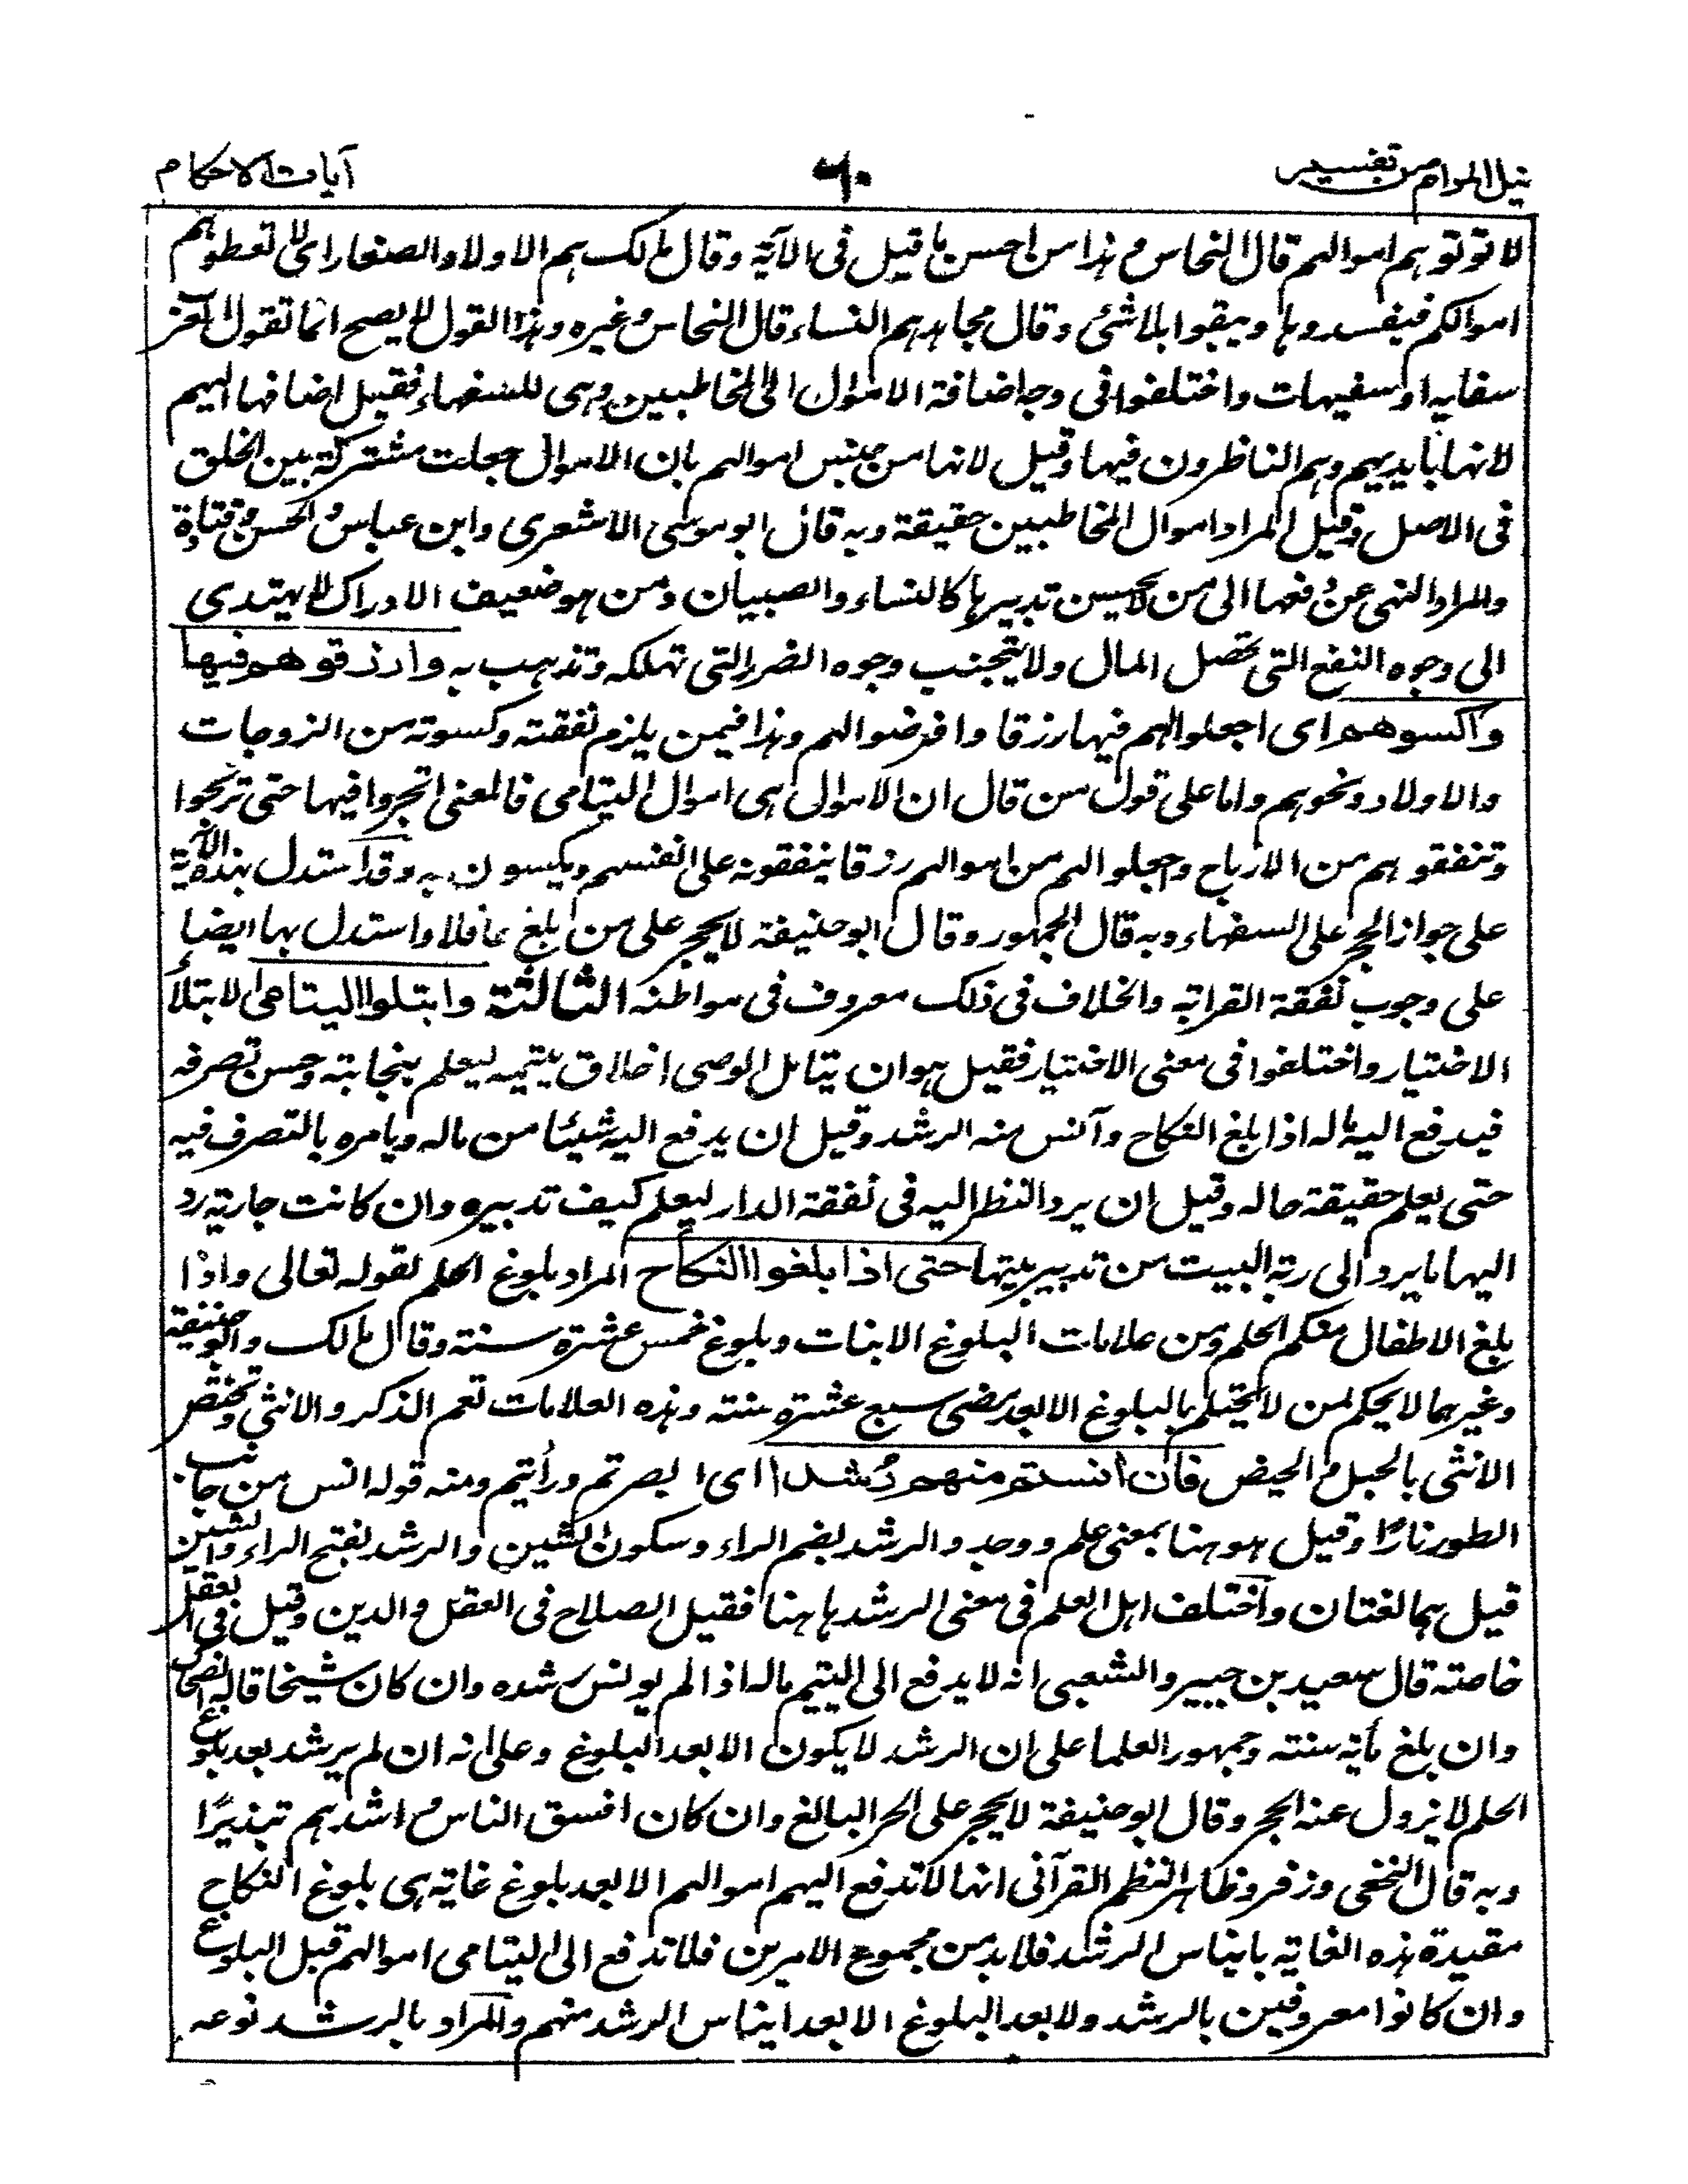 نيل المرام من تفسير
٦٠
آيات الاحكام
لا توتوهم اموالهم قال النحاس وهذا من احسن ما قيل فى الآية وقال مالك هم الاولاد الصغار اى لا تعطوهم
اموالكم فيفسدوها ويبقوا بلا شئ وقال مجاهد هم النساء قال النحاس وغيره وهذا القول لا يصح انما تقول العرب
سفايه او سفيهات واختلفوا فى وجه اضافة الاموال الى المخاطبين وهى للسفهاء فقيل اضافها اليهم
لانها بايديهم وهم الناظرون فيها وقيل لانها من جنس اموالهم بان الاموال جعلت مشتركة بين الخلق
فى الاصل وقيل المراد اموال المخاطبين حقيقة وبه قال ابو موسى الاشعرى وابن عباس والحسن وقتادة
والمراد النهى عن دفعها الى من لا يحسن تدبيرها كالنساء والصبيان ومن هو ضعيف الادراك لا يهتدى
الى وجوه النفع التى تحصل المال ولا يتجنب وجوه الضرر التى تهلكه وتذهب به وارزقوهم فيها
واكسوهم اى اجعلوا لهم فيها رزقا وافرضوا لهم وهذا فيمن يلزم نفقته وكسوته من الزوجات
والاولاد ونحوهم واما على قول من قال ان الاموال هى اموال اليتامى فالمعنى اتجروا فيها حتى تربحوا
وتنفقوهم من الارباح واجعلوا لهم من اموالهم رزقا ينفقونه على انفسهم ويكسون به وقد استدل بهذه الآية
على جواز الحجر على السفهاء وبه قال الجمهور وقال ابو حنيفة لا يحجر على من بلغ عاقلا واستدل بها ايضا
على وجوب نفقة القرابة والخلاف فى ذلك معروف فى مواطنه الثالثة وابتلوا اليتامى الابتلاء
الاختيار واختلفوا فى معنى الاختيار فقيل هو ان يتامل الوصى اخلاق يتيمه ليعلم بنجابته وحسن تصرفه
فيدفع اليه ماله اذا بلغ النكاح وآنس منه الرشد وقيل ان يدفع اليه شيئا من ماله ويامره بالتصرف فيه
حتى يعلم حقيقة حاله وقيل ان يرد النظر اليه فى نفقة الدار ليعلم كيف تدبيره وان كانت جارية رد
اليها ما يرد الى ربة البيت من تدبير بيتها حتى اذا بلغوا النكاح المراد بلوغ الحلم لقوله تعالى واذا
بلغ الاطفال منكم الحلم ومن علامات البلوغ الانبات وبلوغ خمس عشرة سنة وقال مالك وابو حنيفة
وغيرهما لا يحكم لمن لا يحتلم بالبلوغ الا بعد مضى سبع عشرة سنة وهذه العلامات تعم الذكر والانثى وتختص
الانثى بالحبل والحيض فان انستم منهم رشدا اى ابصرتم ورأيتم ومنه قوله انس من جانب
الطور نارا وقيل هو هنا بمعنى علم ووجد والرشد بضم الراء وسكون الشين والرشد بفتح الراء والشين
قيل هما لغتان واختلف اهل العلم فى معنى الرشد هاهنا فقيل الصلاح فى العقل والدين وقيل فى العقل
خاصة قال سعيد بن جبير والشعبى انه لا يدفع الى اليتيم ماله اذا لم يونس رشده وان كان شيخا قال الضحاك
وان بلغ مأية سنة وجمهور العلما على ان الرشد لا يكون الا بعد البلوغ وعلى انه ان لم يرشد بعد بلوغ
الحلم لا يزول عنه الحجر وقال ابو حنيفة لا يحجر على الحر البالغ وان كان افسق الناس واشدهم تبذيرًا
وبه قال النخعى وزفر وظاهر النظم القرآنى انها لا تدفع اليهم اموالهم الا بعد بلوغ غاية هى بلوغ النكاح
مقيدة هذه الغاية بايناس الرشد فلا بد من مجموع الامرين فلا تدفع الى اليتامى اموالهم قبل البلوغ
وان كانوا معروفين بالرشد ولا بعد البلوغ الا بعد ايناس الرشد منهم والمراد بالرشد نوعه